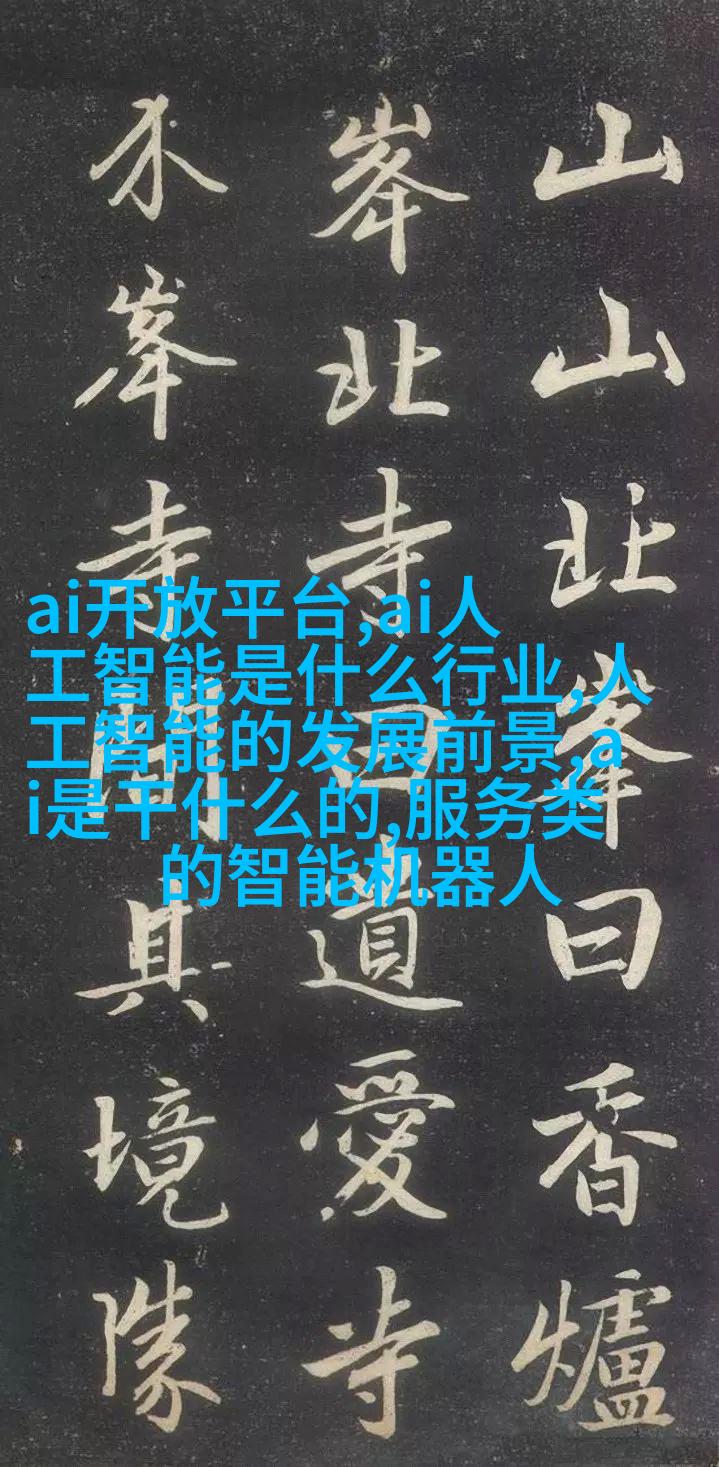 山山北峯曰香爐
峯北寺曰遺愛寺
介峯寺間其境勝
ai开放平台,ai人
工智能是什么行业,人
工智能的发展前景,a
i是干什么的,服务类
的智能机器人